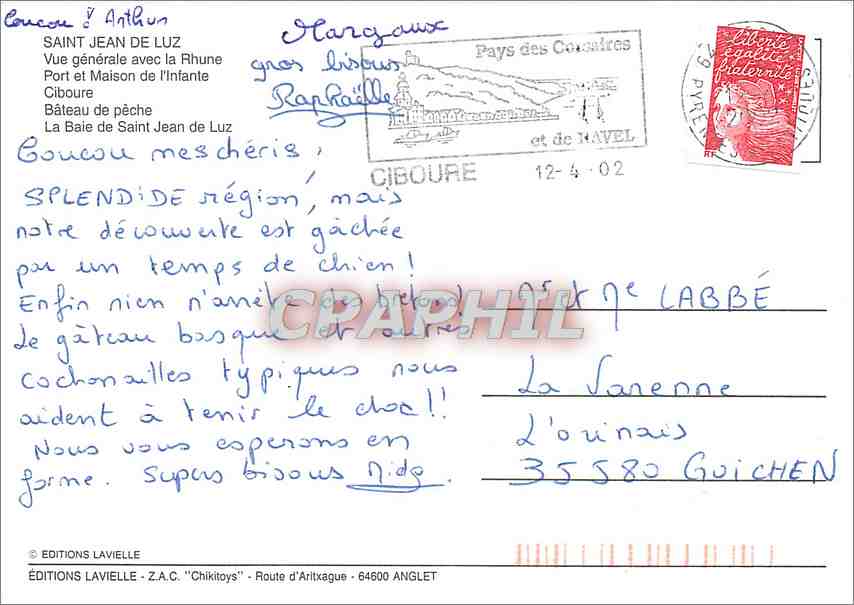 Coucou à Arthur
Margaux
gros bisous
Raphaëlle
SAINT JEAN DE LUZ
Vue générale avec la Rhune
Port et Maison de l'Infante
Ciboure
Bâteau de pêche
La Baie de Saint Jean de Luz
Pays des Corsaires
et de RAVEL
CIBOURE 12-4-02
liberté
égalité
fraternité
RF
Coucou mes chéris,
SPLENDIDE région, mais
notre découverte est gâchée
par un temps de chien !
Enfin rien n'arrête des bretons!
Le gâteau basque et autres
cochonailles typiques nous
aident à tenir le choc !!
Nous vous esperons en
forme. Supers bisous
Mr et Me LABBÉ
La Varenne
L'orinais
35580 GUICHEN
CPAPHIL
© EDITIONS LAVIELLE
ÉDITIONS LAVIELLE - Z.A.C. "Chikitoys" - Route d'Aritxague - 64600 ANGLET